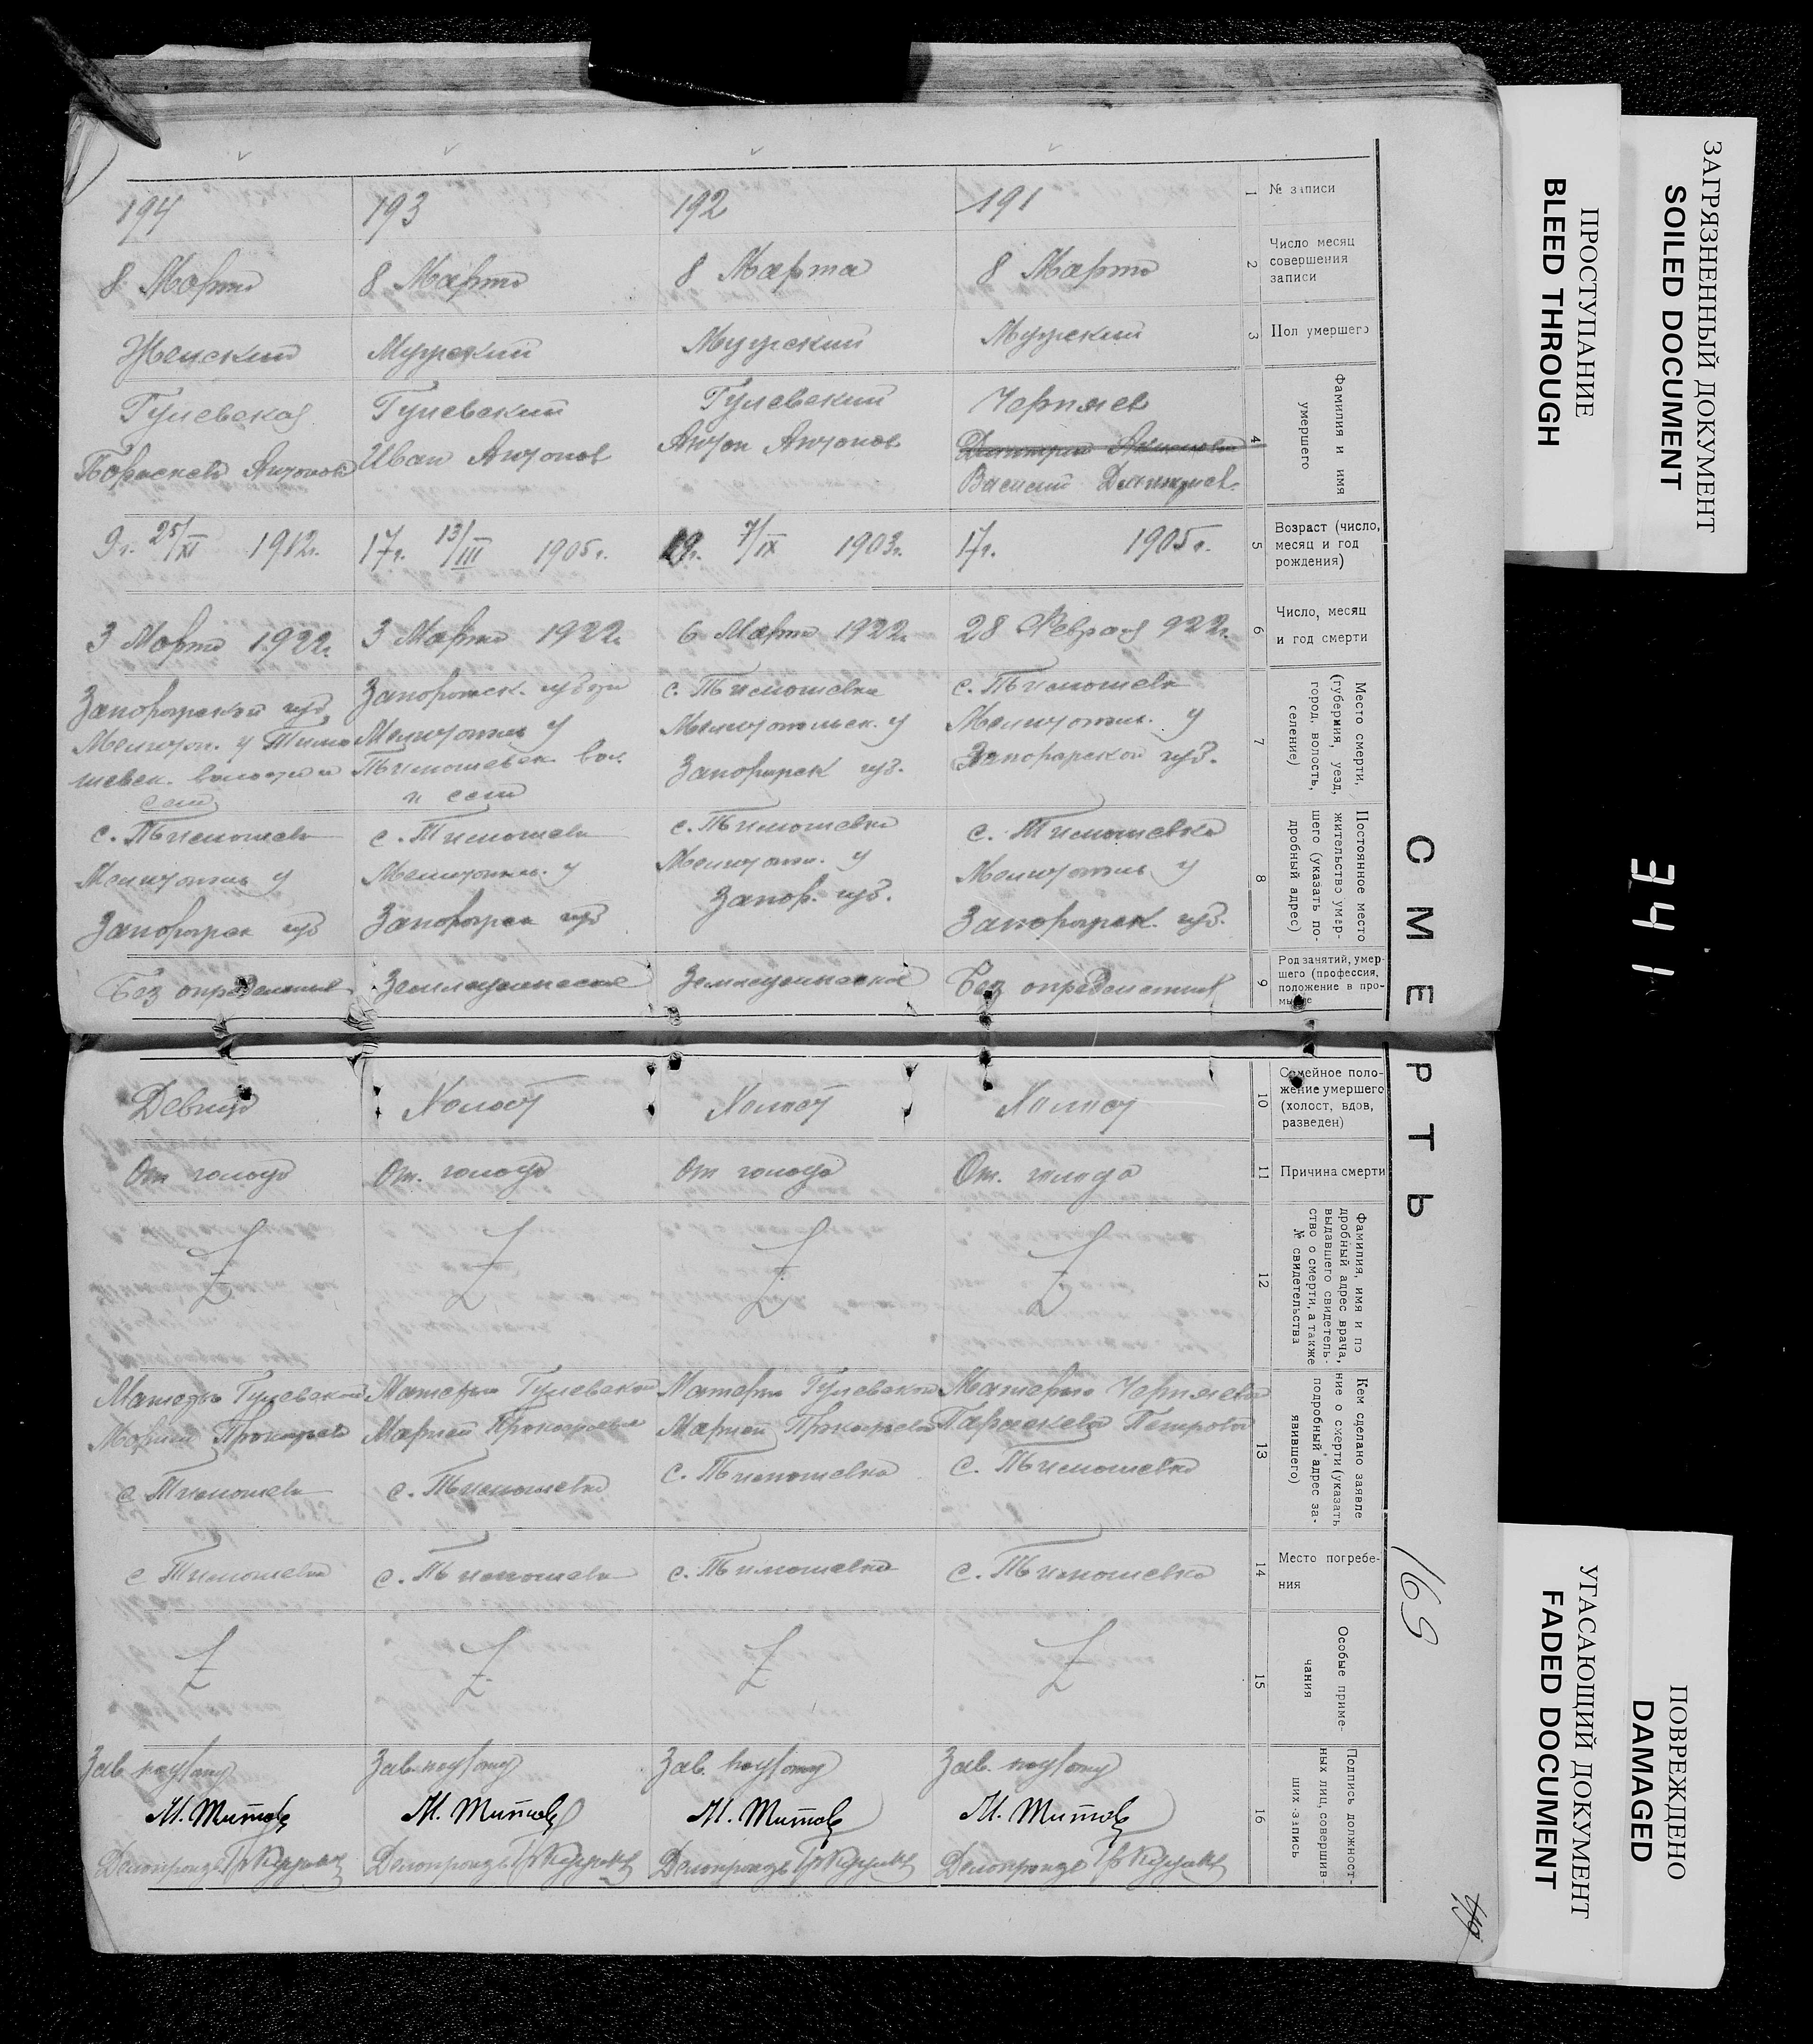 СМЕРТЬ
341
169
ЗАГРЯЗНЕННЫЙ ДОКУМЕНТ
SOILED DOCUMENT
ПРОСТУПАНИЕ
BLEED THROUGH
ПОВРЕЖДЕНО
DAMAGED
УГАСАЮЩИЙ ДОКУМЕНТ
FADED DOCUMENT
1
№ записи
191
192
193
194
2
Число месяц
совершения
записи
8 Марта
8 Марта
8 Марта
8 Марта
3
Пол умершего
Мужский
Мужский
Мужский
Женский
4
Фамилия и имя
умершего
Черняев
Василий Дмитриев.
Гулевский
Антон Антонов
Гулевский
Иван Антонов
Гулевская
Параскева Антонова
5
Возраст (число,
месяц и год
рождения)
17г. 1905г.
19г. 7/IX 1903г.
17г. 13/III 1905г.
9г. 25/XI 1912г.
6
Число, месяц
и год смерти
28 Февраля 922г.
6 Марта 1922г.
3 Марта 1922г.
3 Марта 1922г.
7
Место смерти,
(губерния, уезд,
город, волость,
селение)
с. Тимошевка
Мелитопил. у
Запорожской губ.
с. Тимошевка
Мелитопольск. у
Запорожск губ.
Запорожск. губерн
Мелитопил у
Тимошевск. вол.
и села
Запорожской губ,
Мелитоп. у Тимо
шевск. волости и
села
8
Постоянное место
жительство умер-
шего (указать по-
дробный адрес)
с. Тимошевка
Мелитопил у
Запорожск. губ.
с. Тимошевка
Мелитопил. у
Запор. губ.
с. Тимошевка
Мелитопил. у
Запорожск губ
с. Тимошевка
Мелитопил у
Запорожск губ
9
Род занятий, умер-
шего (профессия,
положение в про-
Без определенных
Земледельческое
Земледельческое
Без определенных
10
Семейное поло-
жение умершего
(холост, вдов,
разведен)
Холост
Холост
Холост
Девица
11
Причина смерти
От. голода
От голода
От. голода
От голода
12
Фамилия, имя и по
дробный адрес врача,
выдавшего свидетель-
ство о смерти, а также
№ свидетельства
Z
Z
Z
Z
13
Кем сделано заявле
ние о смерти (указать
подробный адрес за-
явившего)
Матерью Черняева
Параскевой Петровой
с. Тимошевка
Матерью Гулевской
Марией Прокофьевой
с. Тимошевка
Матерью Гулевской
Марией Прокофьевой
с. Тимошевка
Матерью Гулевской
Марией Прокофьевой
с Тимошевка
14
Место погребе-
ния
с. Тимошевка
с. Тимошевка
с. Тимошевка
с Тимошевка
15
Особые приме-
чания
Z
Z
Z
Z
16
Подпись должност-
ных лиц, совершив-
ших запись
Зав. подотд
М. Титов
Делопроизв
Зав. подотд
М. Титов
Делопроизв
Зав. подотд
М. Титов
Делопроизв
Зав подотд
М. Титов
Делопроизв